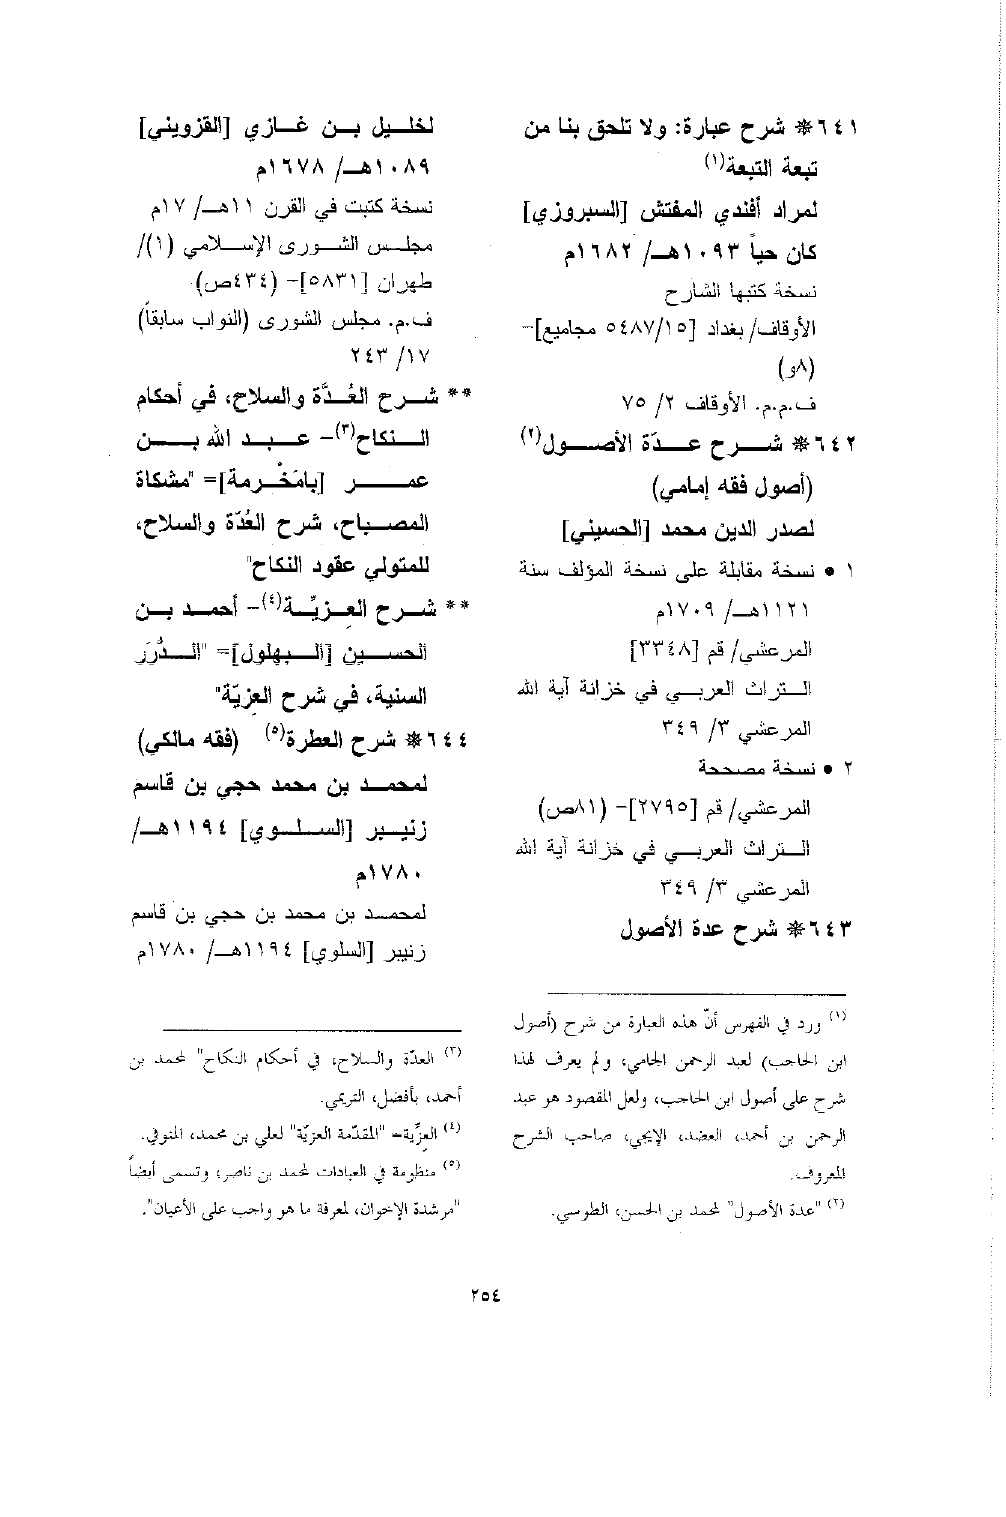 ٦٤١* شرح عبارة: ولا تلحق بنا من
تبعة التبعة(١)
لمراد أفندي المفتش [السبروزي]
كان حياً ١٠٩٣هـ/ ١٦٨٢م
نسخة كتبها الشارح
الأوقاف/ بغداد [٥٤٨٧/١٥ مجاميع]-
(٨و)
ف.م.م. الأوقاف ٢/ ٧٥
٦٤٢* شرح عدّة الأصول(٢)
(أصول فقه إمامي)
لصدر الدين محمد [الحسيني]
١ • نسخة مقابلة على نسخة المؤلف سنة
١١٢١هـ/ ١٧٠٩م
المرعشي/ قم [٣٣٤٨]
التراث العربي في خزانة آية الله
المرعشي ٣/ ٣٤٩
٢ • نسخة مصححة
المرعشي/ قم [٢٧٩٥]- (٨١ص)
التراث العربي في خزانة آية الله
المرعشي ٣/ ٣٤٩
٦٤٣* شرح عدة الأصول
(١) ورد في الفهرس أنّ هذه العبارة من شرح (أصول
ابن الحاجب) لعبد الرحمن الجامي، ولم يعرف لهذا
شرح على أصول ابن الحاجب، ولعل المقصود هو عبد
الرحمن بن أحمد، العضد، الإيجي، صاحب الشرح
المعروف.
(٢) "عدة الأصول" لمحمد بن الحسن، الطوسي.
لخليل بن غازي [القزويني]
١٠٨٩هـ/ ١٦٧٨م
نسخة كتبت في القرن ١١هـ/ ١٧م
مجلس الشورى الإسلامي (١)/
طهران [٥٨٣١]- (٤٣٤ص)
ف.م. مجلس الشورى (النواب سابقاً)
١٧/ ٢٤٣
** شرح العُدَّة والسلاح، في أحكام
النكاح(٣)- عبد الله بن
عمر [بامَخْرمة]= "مشكاة
المصباح، شرح العُدّة والسلاح،
للمتولي عقود النكاح"
** شرح العِزيِّة(٤)- أحمد بن
الحسين [البهلول]= "الدُّرَر
السنية، في شرح العِزيّة"
٦٤٤* شرح العطرة(٥) (فقه مالكي)
لمحمد بن محمد حجي بن قاسم
زنيبر [السلوي] ١١٩٤هـ/
١٧٨٠م
لمحمد بن محمد بن حجي بن قاسم
زنيبر [السلوي] ١١٩٤هـ/ ١٧٨٠م
(٣) العدّة والسلاح، في أحكام النكاح" لمحمد بن
أحمد، بأفضل، التريمي.
(٤) العِزِّية= "المقدّمة العزيّة" لعلي بن محمد، المنوفي.
(٥) منظومة في العبادات لمحمد بن ناصر، وتسمى أيضاً
"مرشدة الإخوان، لمعرفة ما هو واجب على الأعيان".
٢٥٤